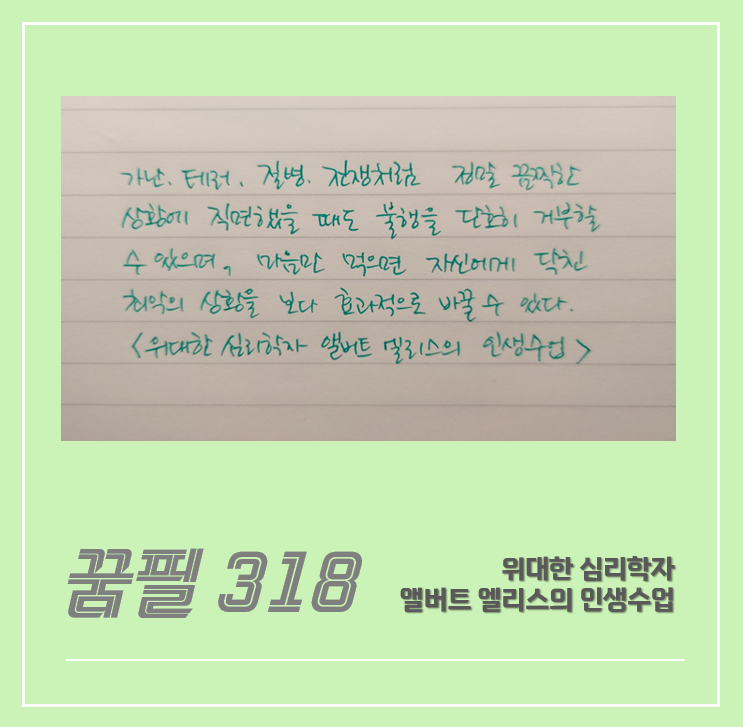 가난. 테러. 질병. 전쟁처럼 정말 끔찍한
상황에 직면했을 때도 불행을 단호히 거부할
수 있으며, 마음만 먹으면 자신에게 닥친
최악의 상황을 보다 효과적으로 바꿀 수 있다.
<위대한 심리학자 앨버트 엘리스의 인생수업>
꿈필 318
위대한 심리학자
앨버트 엘리스의 인생수업